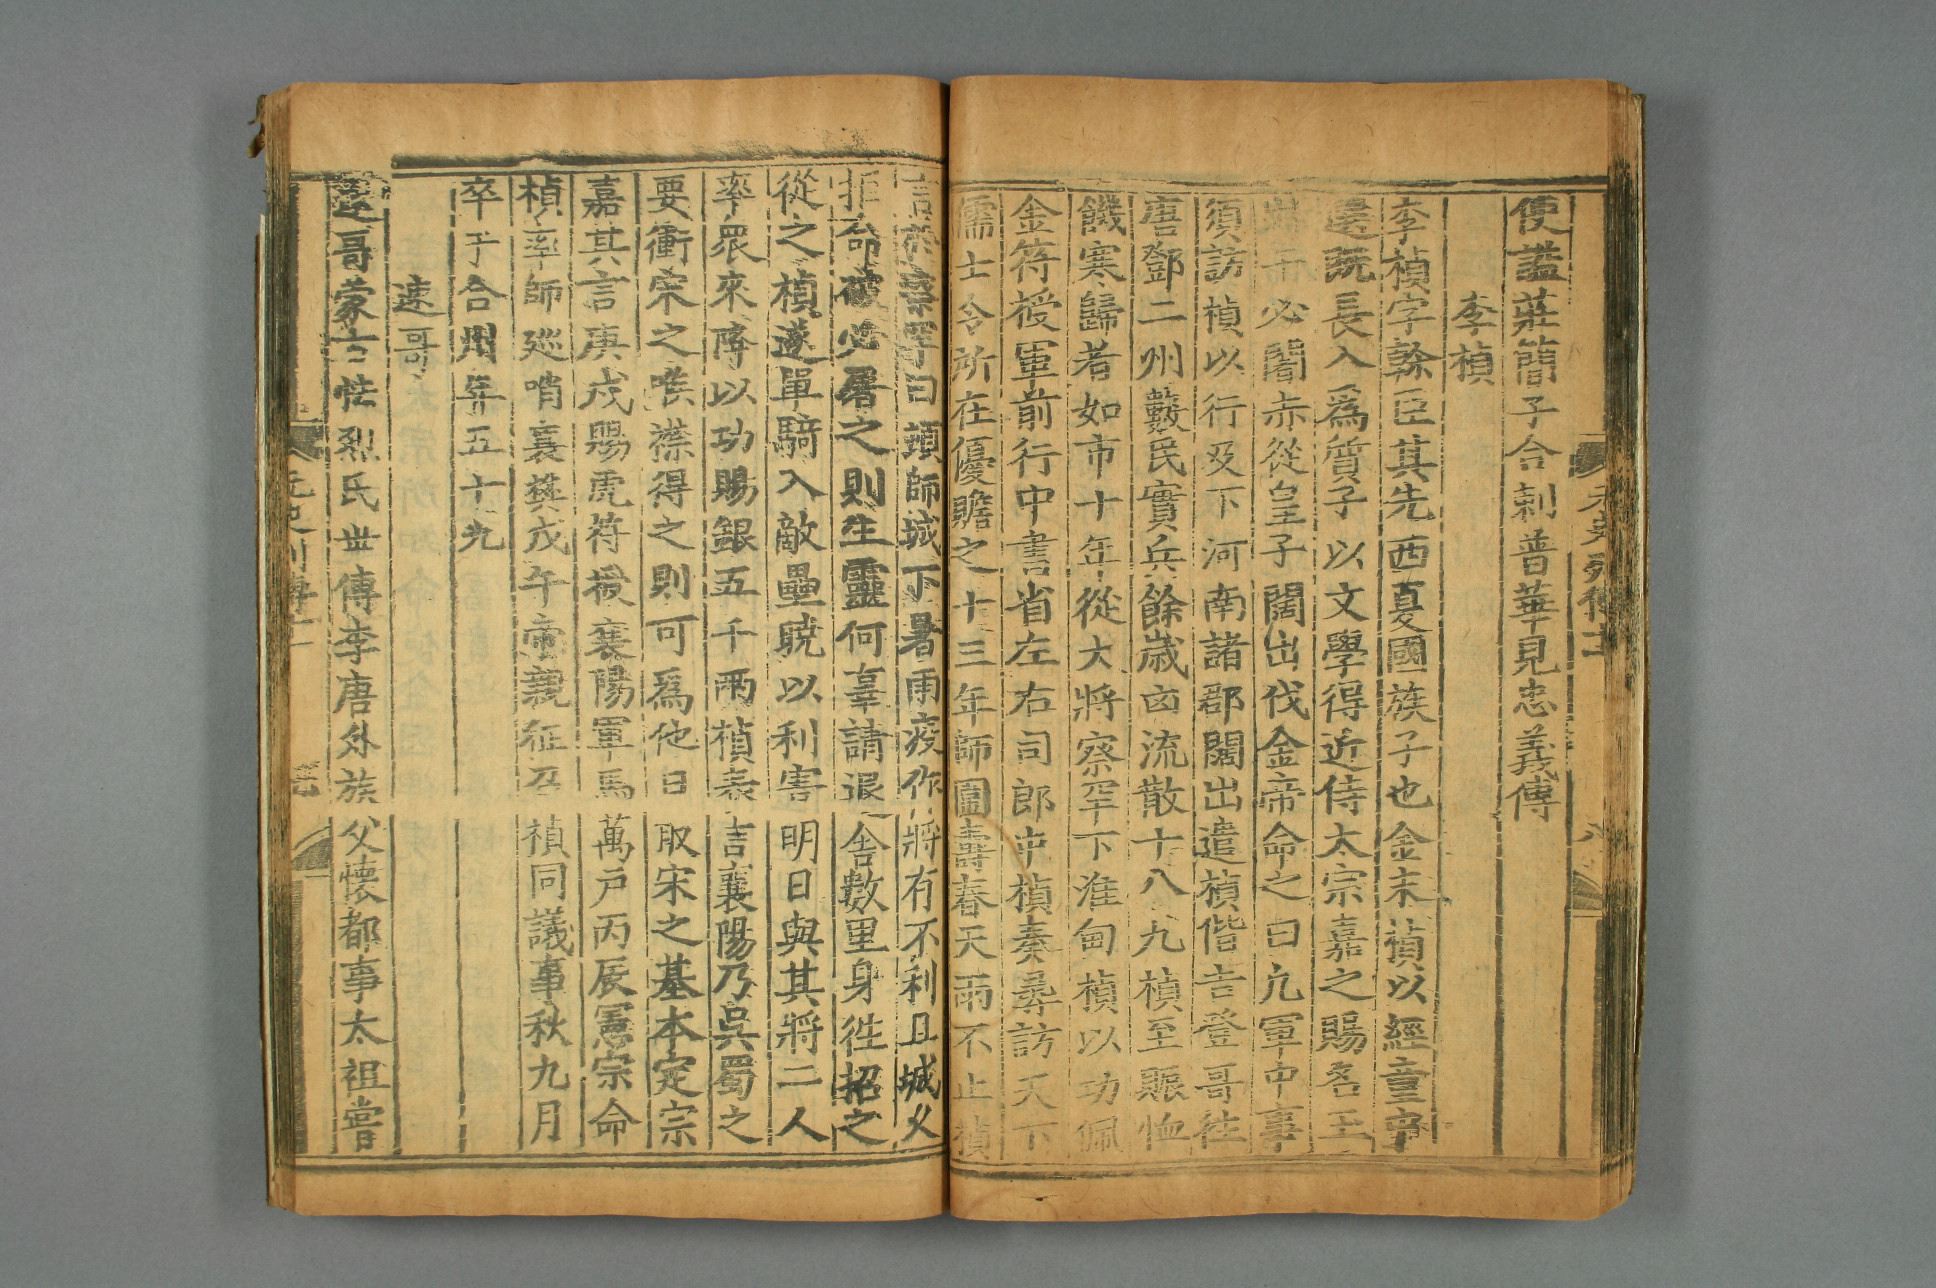 使諡莊簡子合剌普華見忠義傳
李楨
李楨字幹臣其先西夏國族子也金末楨以經童中
選既長入爲質子以文學得近侍太宗嘉之賜名玉
出干必闍赤從皇子闊出伐金帝命之曰凡軍中事
須訪楨以行及下河南諸郡闊出遣楨偕吉登哥往
唐鄧二州數民實兵餘歲凶流散十八九楨至賑恤
饑寒歸者如市十年從大將察罕下淮甸楨以功佩
金符授軍前行中書省左右司郎中楨奏尋訪天下
儒士令所在優贍之十三年師圍壽春天雨不止楨
言於察罕曰頓師城下暑雨疫作將有不利且城久
拒命破必屠之則生靈何辜請退舍數里身往招之
從之楨遂單騎入敵壘曉以利害明日與其將二人
率眾來降以功賜銀五千兩楨表言襄陽乃吳蜀之
要衝宋之喉襟得之則可爲他日取宋之基本定宗
嘉其言庚戌賜虎符授襄陽軍馬萬戶丙辰憲宗命
楨率師巡哨襄樊戊午帝親征召楨同議事秋九月
卒于合州年五十九
速哥
速哥蒙古怯烈氏世傳李唐外族父懷都事太祖嘗
元史列傳十一